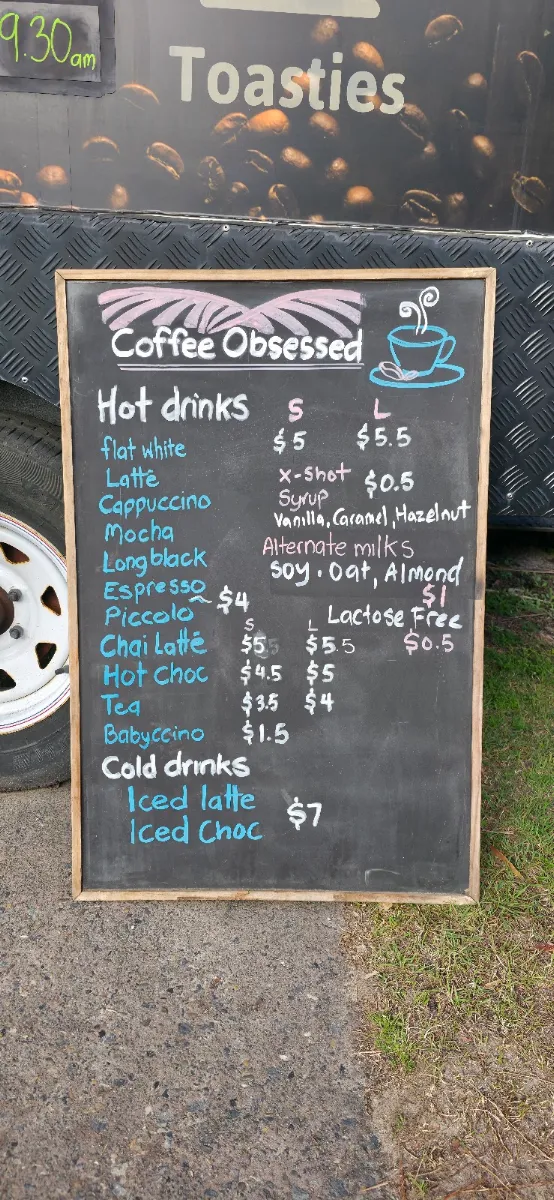 9.30am
Toasties
Coffee Obsessed
Hot drinks S L
flat white $5 $5.5
Latté
Cappuccino
Mocha
Long black
Espresso
Piccolo ~ $4
x-shot $0.5
Syrup
Vanilla, Caramel, Hazelnut
Alternate milks
Soy. Oat, Almond
$1
Lactose Free
$0.5
S L
Chai Latté $5 $5.5
Hot Choc $4.5 $5
Tea $3.5 $4
Babyccino $1.5
Cold drinks
Iced latte
Iced Choc $7